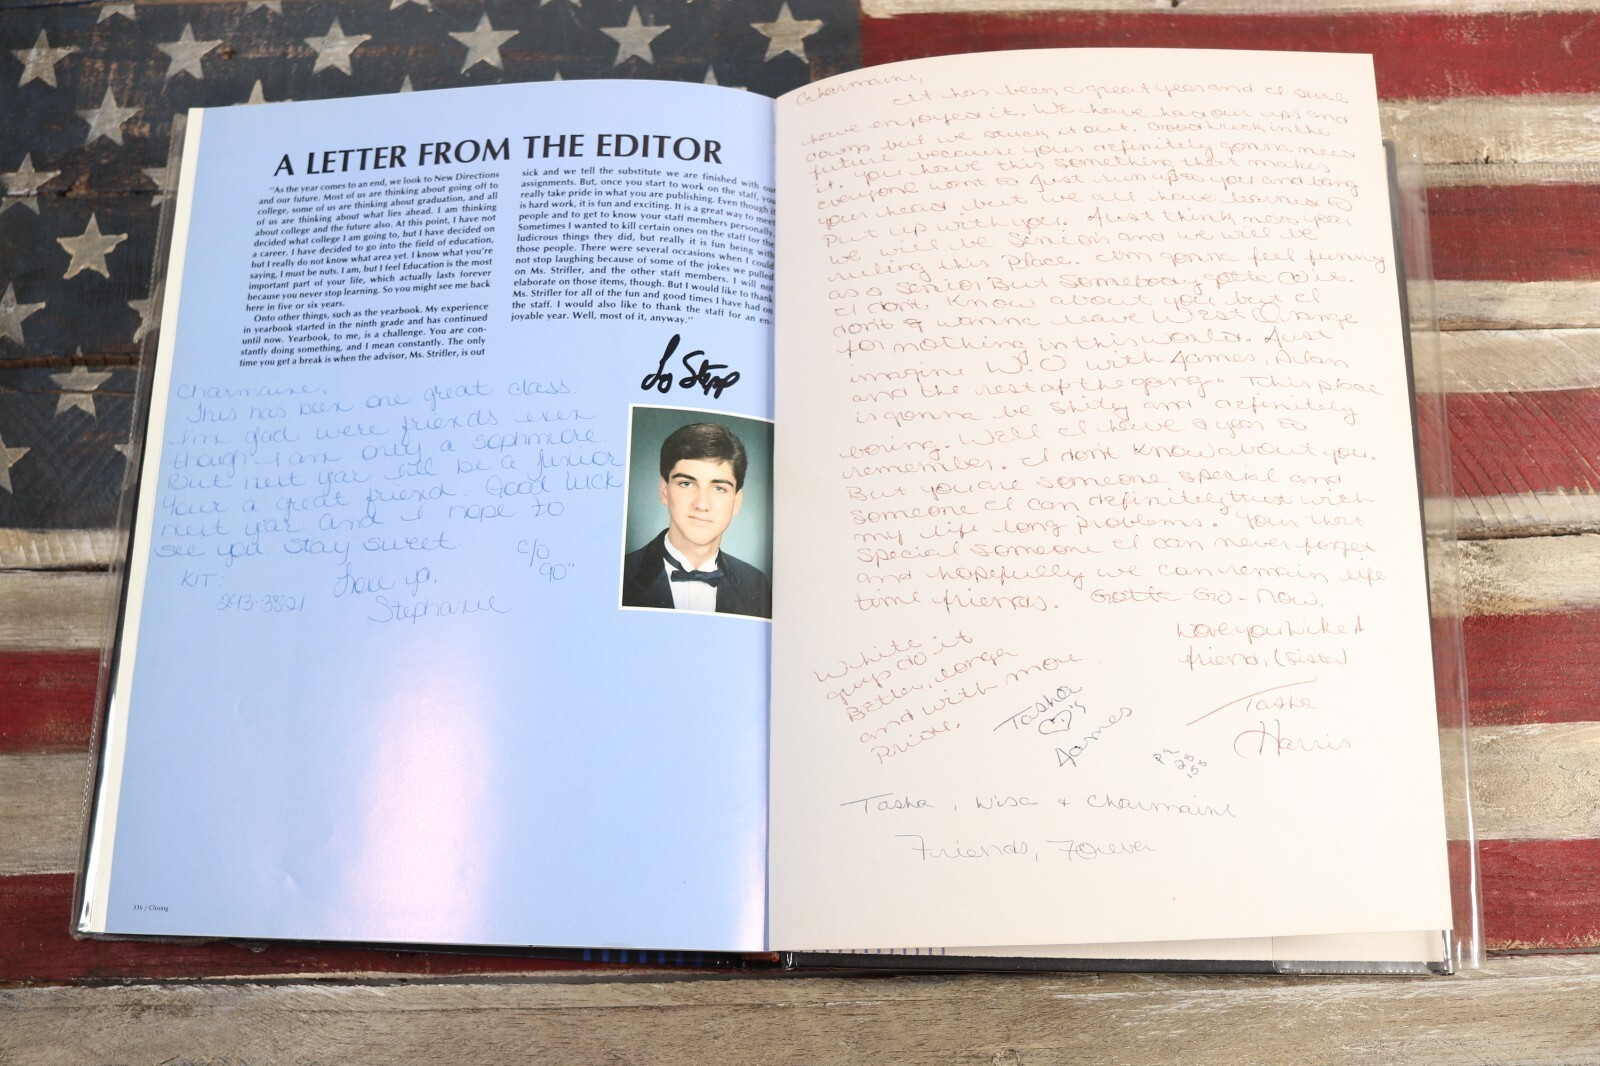 A LETTER FROM THE EDITOR
"As the year comes to an end, we look to New Directions
and our future. Most of us are thinking about going off to
college, some of us are thinking about graduation, and all
of us are thinking about what lies ahead. I am thinking
about college and the future also. At this point, I have not
decided what college I am going to, but I have decided on
a career. I have decided to go into the field of education,
but I really do not know what area yet. I know what you're
saying, I must be nuts. I am, but I feel Education is the most
important part of your life, which actually lasts forever
because you never stop learning. So you might see me back
here in five or six years.
Onto other things, such as the yearbook. My experience
in yearbook started in the ninth grade and has continued
until now. Yearbook, to me, is a challenge. You are con-
stantly doing something, and I mean constantly. The only
time you get a break is when the advisor, Ms. Strifler, is out
sick and we tell the substitute we are finished with our
assignments. But, once you start to work on the staff, you
really take pride in what you are publishing. Even though it
is hard work, it is fun and exciting. It is a great way to meet
people and to get to know your staff members personally.
Sometimes I wanted to kill certain ones on the staff for the
ludicrous things they did, but really it is fun being with
those people. There were several occasions when I could
not stop laughing because of some of the jokes we pulled
on Ms. Strifler, and the other staff members. I will not
elaborate on those items, though. But I would like to thank
Ms. Strifler for all of the fun and good times I have had on
the staff. I would also like to thank the staff for an en-
joyable year. Well, most of it, anyway."
Charmaine,
This has been one great class.
I'm glad were friends even
though I am only a sophmore.
But next year I'll be a junior
Your a great friend. Good luck
next year and I hope to
see you. Stay sweet
c/o
90"
KIT:
293-3821
Love ya,
Stephanie
336 / Closing
Charmaine,
It has been a great year and I sure
have enjoyed it. We have had our ups and
downs but we stuck it out. Good luck in the
future because your definitely gonna need
it. You have this something that makes
everyone want to just run up to you and bang
your head but we all have learned to
put up with you. Just think next year
we will be seniors and we will be
ruling this place. I'm gonna feel funny
as a senior But Somebody gotta do it.
I don't know about you but I
don't wanna leave West Orange
for nothing in this world. Just
imagine W.O with James, Adam
and the rest of the gang. This place
is gonna be shity and definitely
boring. Well I have a year to
remember. I don't know about you.
But you are someone special and
someone I can definitely trust with
my life long problems. Your that
special someone I can never forget
and hopefully we can remain life
time friends. Gotta Go - Now.
Love you Like A
friend, (sister)
Tasha
Harris
White
guys do it
Better, longer
and with more
pride.
Tasha
♡'s
James
Tasha, Lisa + Charmaine
Friends, Forever